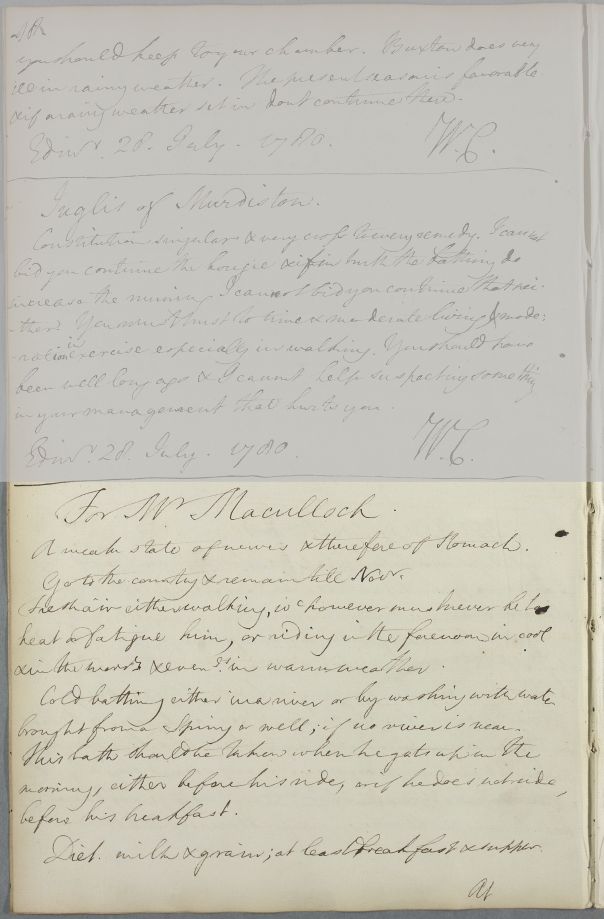 you should keep to your chamber. Buxton does very
ill in rainy weather. The present season is favorable
& if a rainy weather set in dont continue there.
Edinr. 28. July. 1780. W.C.
Inglis of Murdiston.
Constitution singular & very cross to every remedy. I cannot
bid you continue the bougie & if in truth the bathing do
increase the running I cannot bid you continue that nei-
-ther. You must trust to time & moderate living & mode:
-ration in exercise especially in walking. You should have
been well long ago & I cannot help suspecting something
in your management that hurts you.
Edinr. 28. July. 1780. W.C.
For Mr Maculloch.
A weak state of nerves & therefore of Stomach.
Go to the country & remain till Novr.
Fresh air either walking, wc however must never be to
heat or fatigue him, or riding in the forenoon in cool
& in the morng & evengs in warm weather.
Cold bathing either in a river or by washing with water
brought from a Spring or well; if no river is near.
This bath should be taken when he gets up in the
morning, either before his ride, or if he does not ride,
before his breakfast.
Diet. milk & grain; at least breakfast & supper.
At